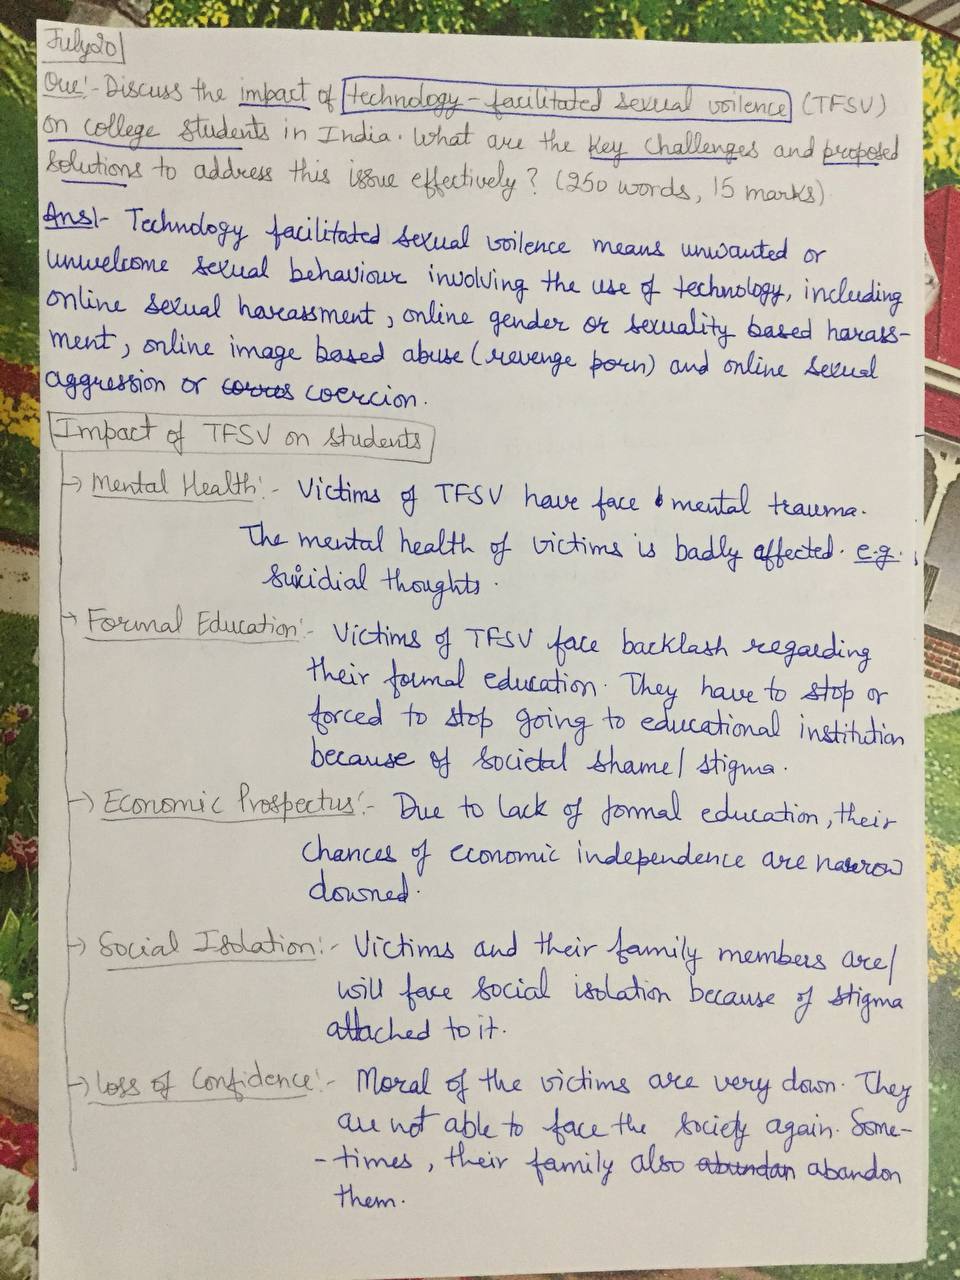 July 20
Que:- Discuss the impact of technology-facilitated sexual voilence (TFSV)
on college students in India. What are the key challenges and proposed
solutions to address this issue effectively? (250 words, 15 marks)
Ans:- Technology facilitated sexual voilence means unwanted or
unwelcome sexual behaviour involving the use of technology, including
online sexual harassment, online gender or sexuality based harass-
ment, online image based abuse (revenge porn) and online sexual
aggression or coercion.
Impact of TFSV on Students
→ Mental Health:- Victims of TFSV have face mental trauma.
The mental health of victims is badly affected. e.g.
suicidial thoughts.
→ Formal Education:- Victims of TFSV face backlash regarding
their formal education. They have to stop or
forced to stop going to educational institution
because of societal shame/stigma.
→ Economic Prospectus:- Due to lack of formal education, their
chances of economic independence are narrow
downed.
→ Social Isolation:- Victims and their family members are/
will face social isolation because of stigma
attached to it.
→ Loss of Confidence:- Moral of the victims are very down. They
are not able to face the society again. Some-
-times, their family also abundan abandon
them.